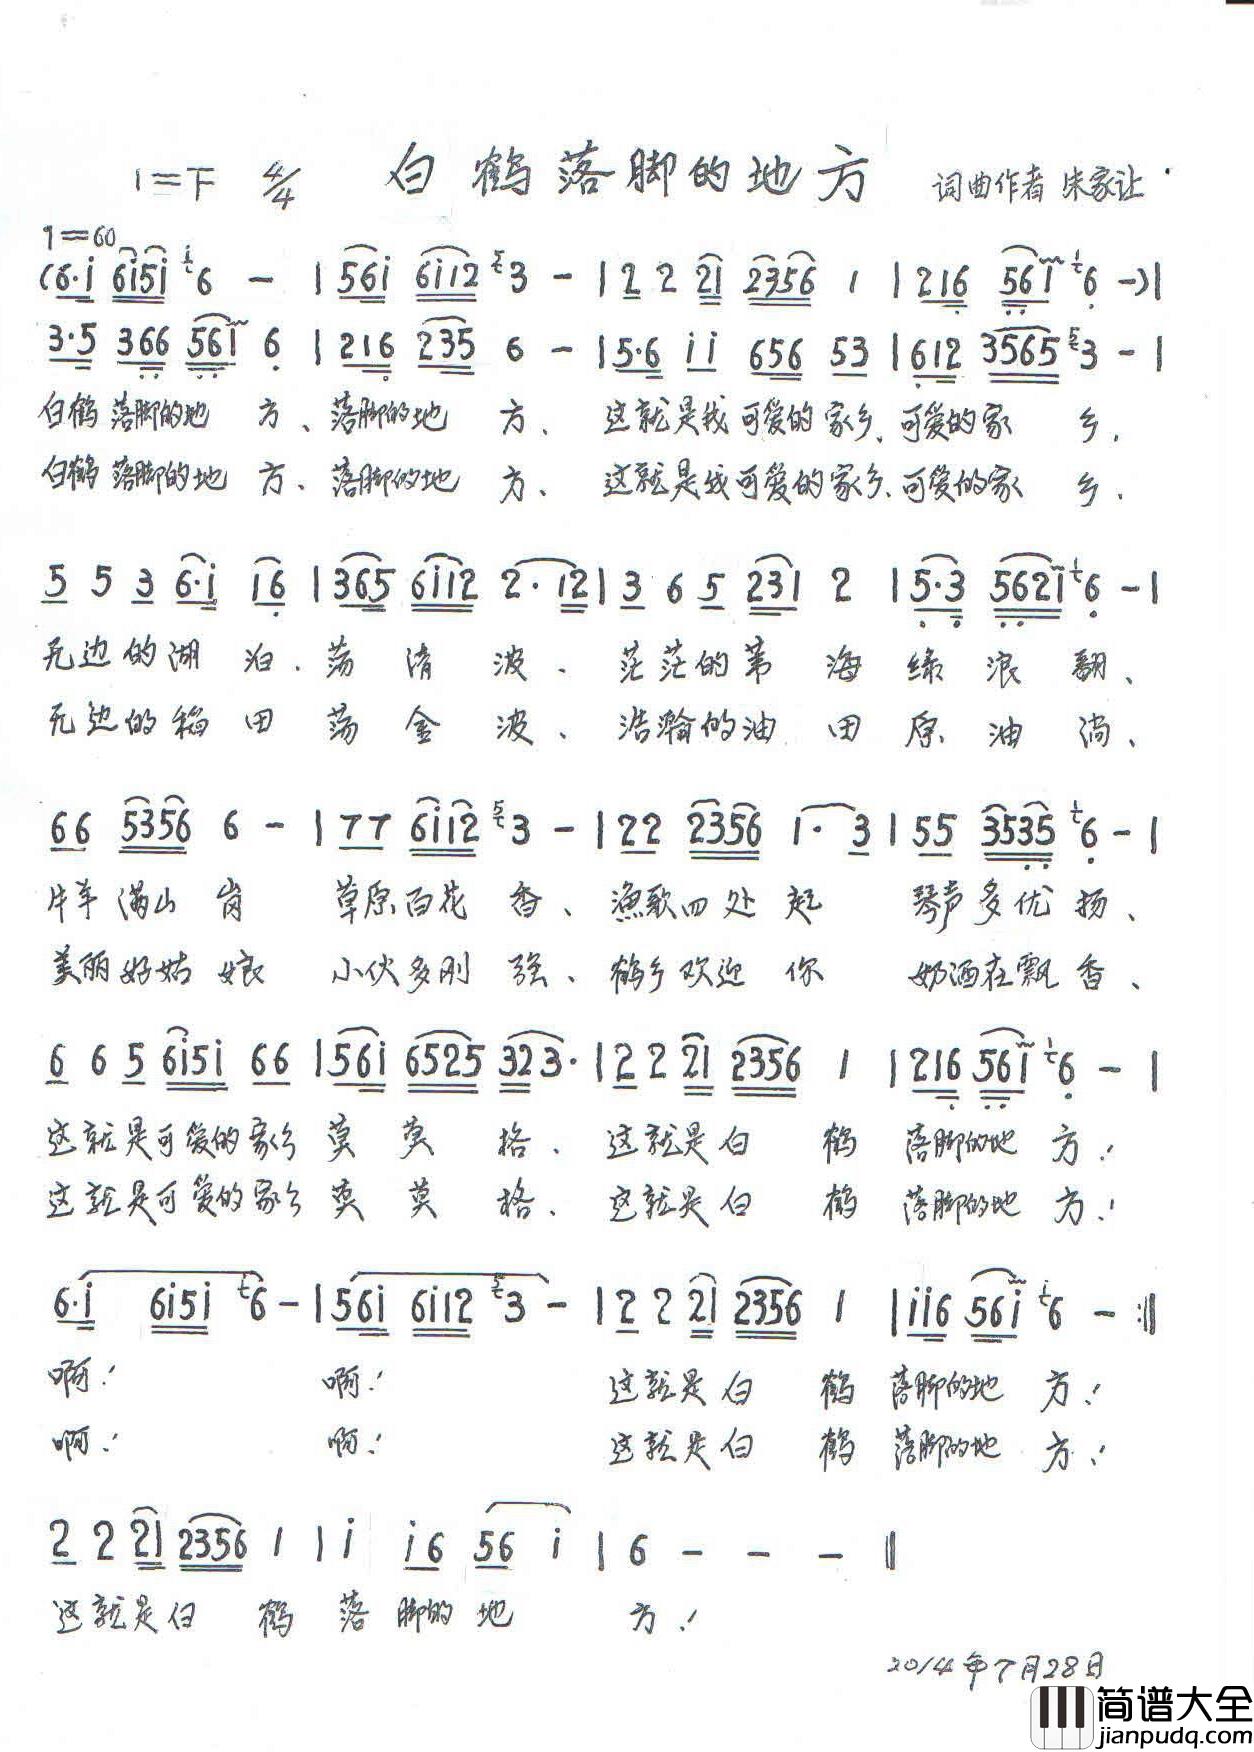 白鹤落脚的地方
1=F 4/4
词曲作者 朱家让
1=60
(6·i 6i5i 6 - | 56i 6i12 3 - | 2 2 21 2356 1 | 216 561 6 -)|
3·5 366 561 6 | 216 235 6 - | 5·6 ii 656 53 | 612 3565 3 - |
白鹤落脚的地 方、落脚的地 方、 这就是我可爱的家乡、可爱的家 乡、
白鹤落脚的地 方、落脚的地 方、 这就是我可爱的家乡、可爱的家 乡、
5 5 3 6·i 16 | 365 6i12 2·12 | 3 6 5 231 2 | 5·3 5621 6 - |
无边的湖泊、荡清波、 茫茫的苇海绿浪翻、
无边的稻田荡金波、浩瀚的油田原油淌、
66 5356 6 - | 77 6i12 3 - | 22 2356 1·3 | 55 3535 6 - |
牛羊满山岗 草原百花香、渔歌四处起 琴声多优扬、
美丽好姑娘 小伙多刚强、鹤乡欢迎你 奶酒在飘香、
6 6 5 6i5i 66 | 56i 6525 323· | 2 2 21 2356 1 | 216 561 6 - |
这就是可爱的家乡 莫莫格、这就是白鹤 落脚的地方!
这就是可爱的家乡 莫莫格、这就是白鹤 落脚的地方!
6·i 6i5i 6 - | 56i 6i12 3 - | 2 2 2i 2356 1 | ii6 56i 6 - :||
啊! 啊! 这就是白鹤 落脚的地方!
啊! 啊! 这就是白鹤 落脚的地方!
2 2 21 2356 1 | i i6 56 i | 6 - - - ||
这就是白鹤 落脚的地 方!
2014年7月28日
简谱大全
jianpudq.com